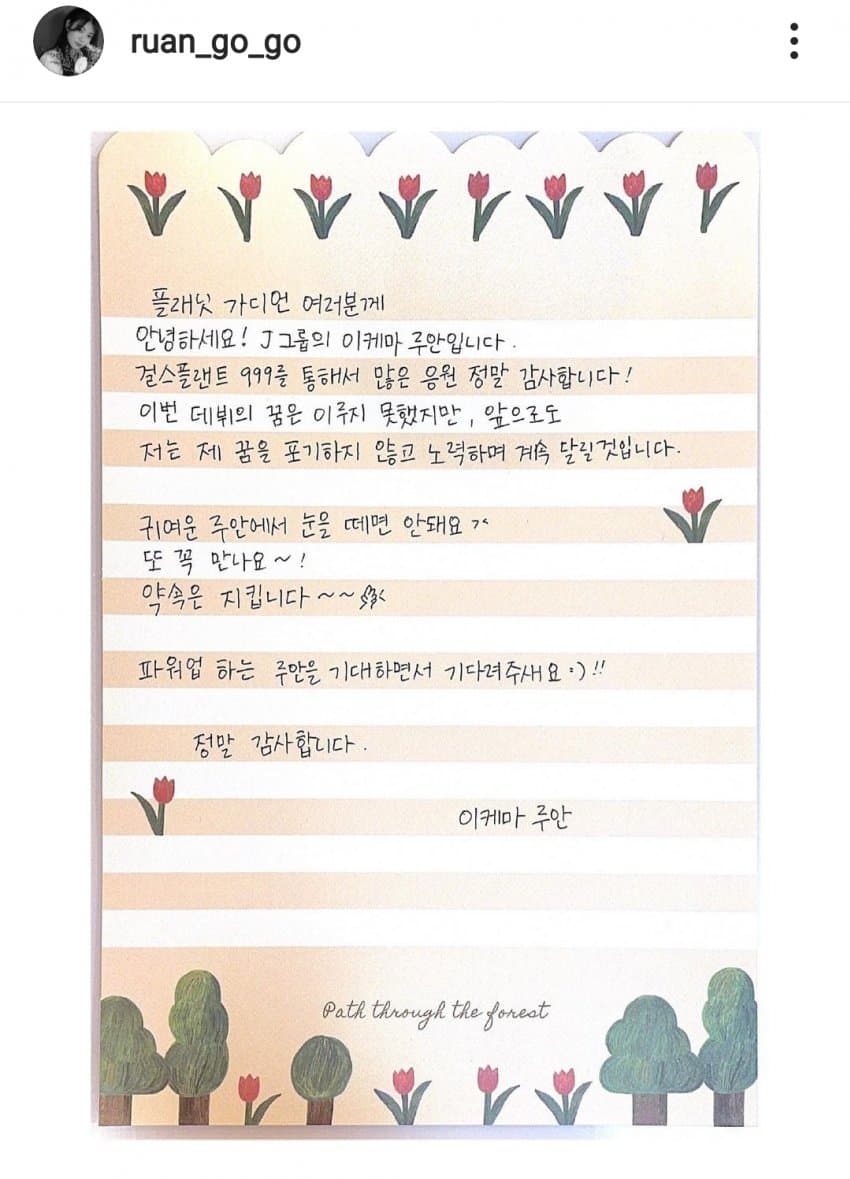 ruan_go_go
플래닛 가디언 여러분께
안녕하세요! J그룹의 이케마 루안입니다.
걸스플랜트 999를 통해서 많은 응원 정말 감사합니다!
이번 데뷔의 꿈은 이루지 못했지만, 앞으로도
저는 제 꿈을 포기하지 않고 노력하며 계속 달릴것입니다.
귀여운 루안에서 눈을 떼면 안돼요 ㅋㅋ
또 꼭 만나요~!
약속은 지킵니다~~
파워업 하는 루안을 기대하면서 기다려주세요 :)!!
정말 감사합니다.
이케마 루안
Path through the forest